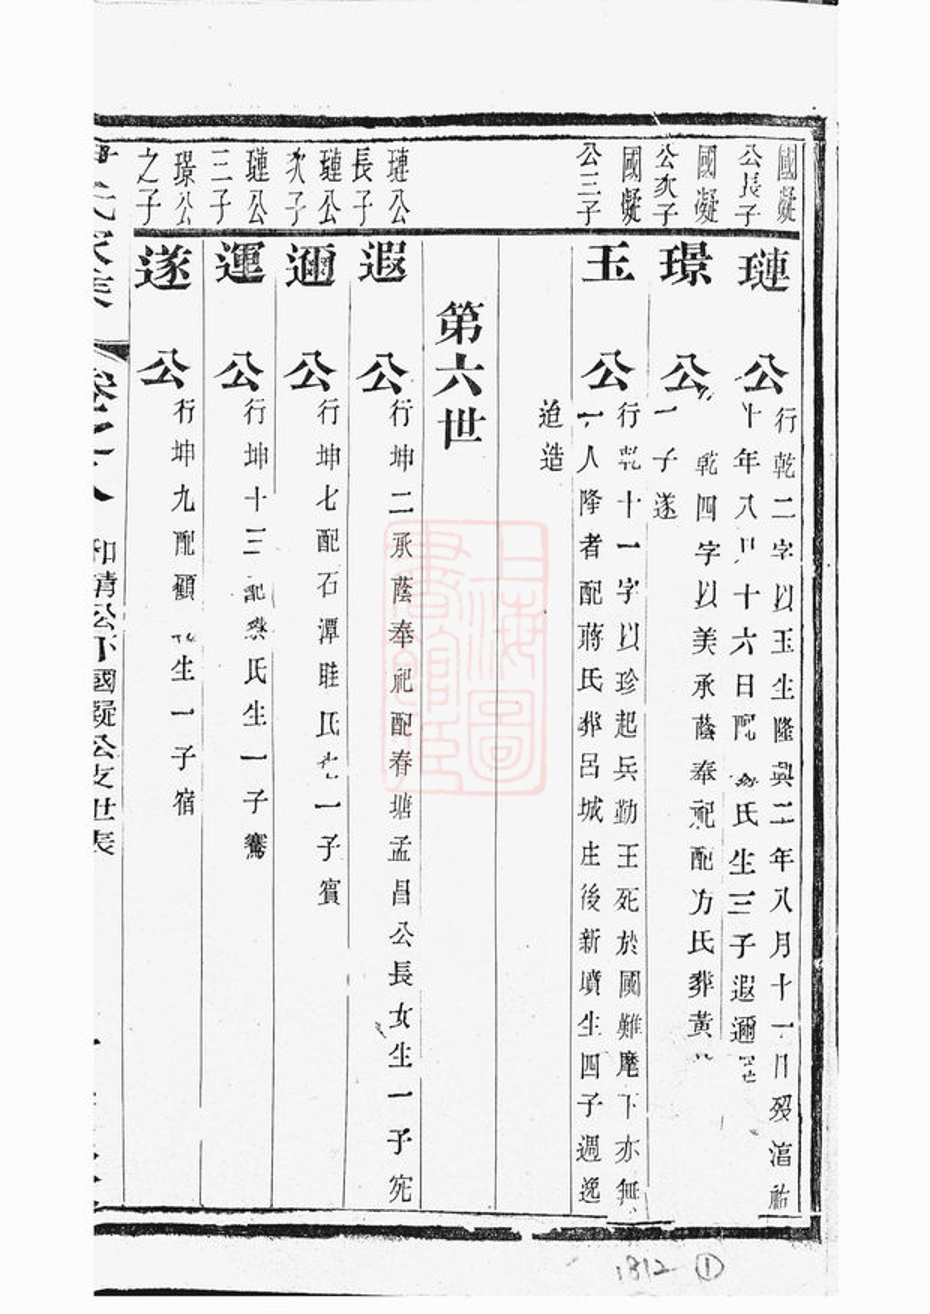 國凝
公長子
璉公
行乾二字以玉生隆興二年八月十一日歿淳祐
十年八月十六日配 氏生三子遐邇
國凝
公次子
璟公
乾四字以美承蔭奉祀配方氏葬黃
一子遂
國凝
公三子
玉公
行乾十一字以珍起兵勤王死於國難麾下亦無
一人降者配蔣氏葬呂城庄後新墳生四子週逸
迨造
第六世
璉公
長子
遐公
行坤二承蔭奉祀配春塘孟昌公長女生一子宛
璉公
次子
邇公
行坤七配石潭眭氏 一子賓
璉公
三子
運公
行坤十三配 氏生一子騫
璟公
之子
遂公
行坤九配顧 生一子宿
尹氏家乘
卷之八
和靖公下國凝公支世表
上海圖書館藏
1812 ①